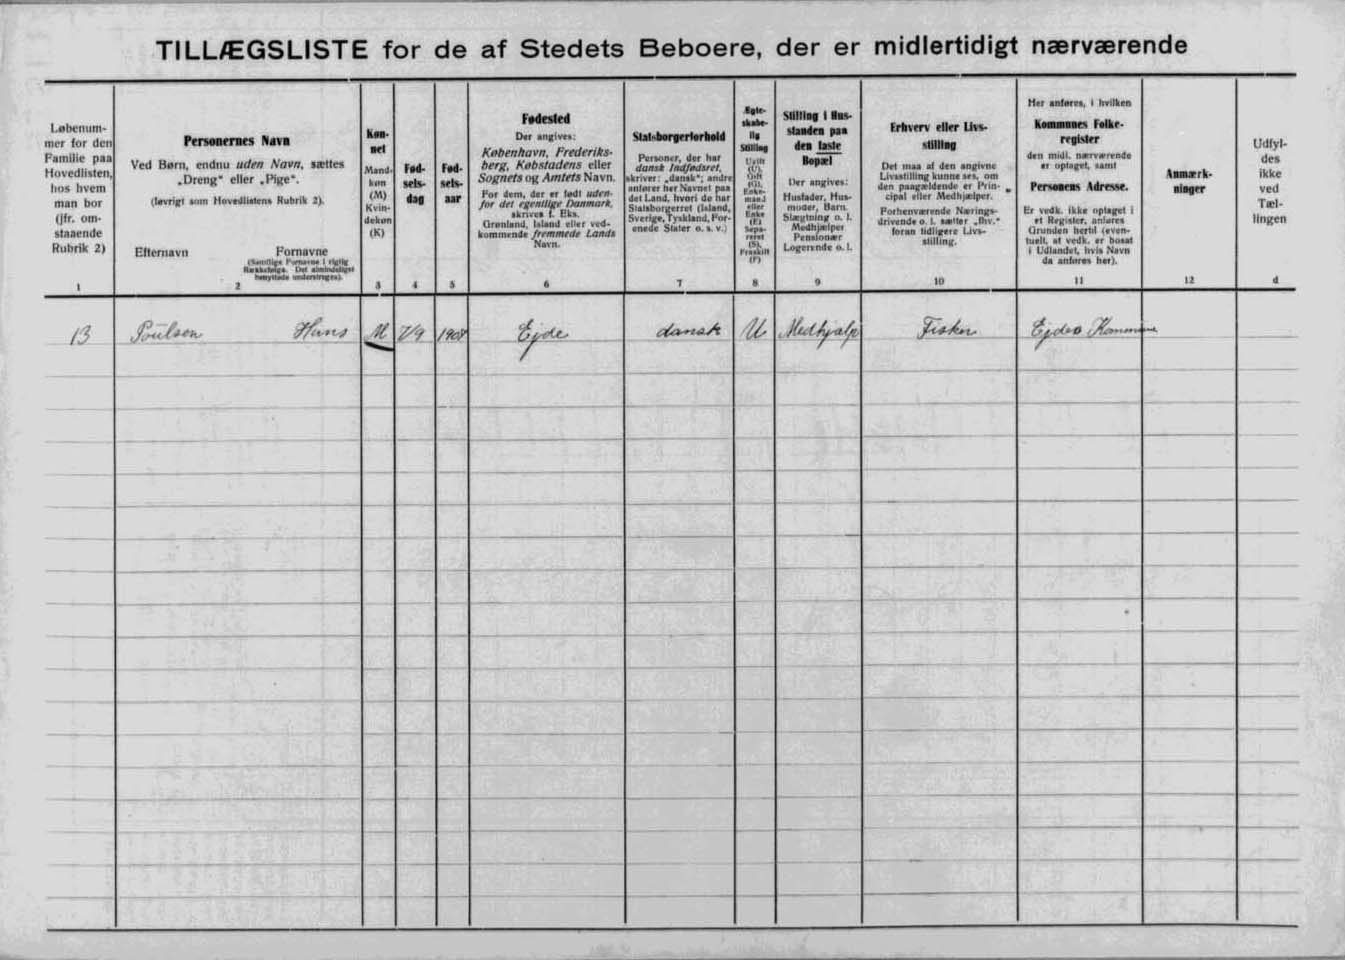 TILLÆGSLISTE for de af Stedets Beboere, der er midlertidigt nærværende
Løbenum-
mer for den
Familie paa
Hovedlisten,
hos hvem
man bor
(jfr. om-
staaende
Rubrik 2)
1
Personernes Navn
Ved Børn, endnu uden Navn, sættes
„Dreng“ eller „Pige“.
(Iøvrigt som Hovedlistens Rubrik 2).
Efternavn
Fornavne
(Samtlige Fornavne i rigtig
Rækkefølge. Det almindeligst
benyttede understreges).
2
Køn-
net
Mand-
køn
(M)
Kvin-
dekøn
(K)
3
Fød-
sels-
dag
4
Fød-
sels-
aar
5
Fødested
Der angives:
København, Frederiks-
berg, Købstadens eller
Sognets og Amtets Navn.
For dem, der er født uden-
for det egentlige Danmark,
skrives f. Eks.
Grønland, Island eller ved-
kommende fremmede Lands
Navn.
6
Statsborgerforhold
Personer, der har
dansk Indfødsret,
skriver: „dansk“; andre
anfører her Navnet paa
det Land, hvori de har
Statsborgerret (Island,
Sverige, Tyskland, For-
enede Stater o. s. v.)
7
Ægte-
skabe-
lig
Stilling
Ugift
(U),
Gift
(G),
Enke-
mand
eller
Enke
(E)
Sepa-
reret
(S),
Fraskilt
(F)
8
Stilling i Hus-
standen paa
den faste
Bopæl
Der angives:
Husfader, Hus-
moder, Barn.
Slægtning o. l.
Medhjælper
Pensionær
Logerende o. l.
9
Erhverv eller Livs-
stilling
Det maa af den angivne
Livsstilling kunne ses, om
den paagældende er Prin-
cipal eller Medhjælper.
Forhenværende Nærings-
drivende o. l. sætter „fhv.“
foran tidligere Livs-
stilling.
10
Her anføres, i hvilken
Kommunes Folke-
register
den midl. nærværende
er optaget, samt
Personens Adresse.
Er vedk. ikke optaget i
et Register, anføres
Grunden hertil (even-
tuelt, at vedk. er bosat
i Udlandet, hvis Navn
da anføres her).
11
Anmærk-
ninger
12
Udfyl-
des
ikke
ved
Tæl-
lingen
d
13 Poulsen Hans M 7/9 Ejde dansk U Medhjælp Fisker Ejdes Kommune